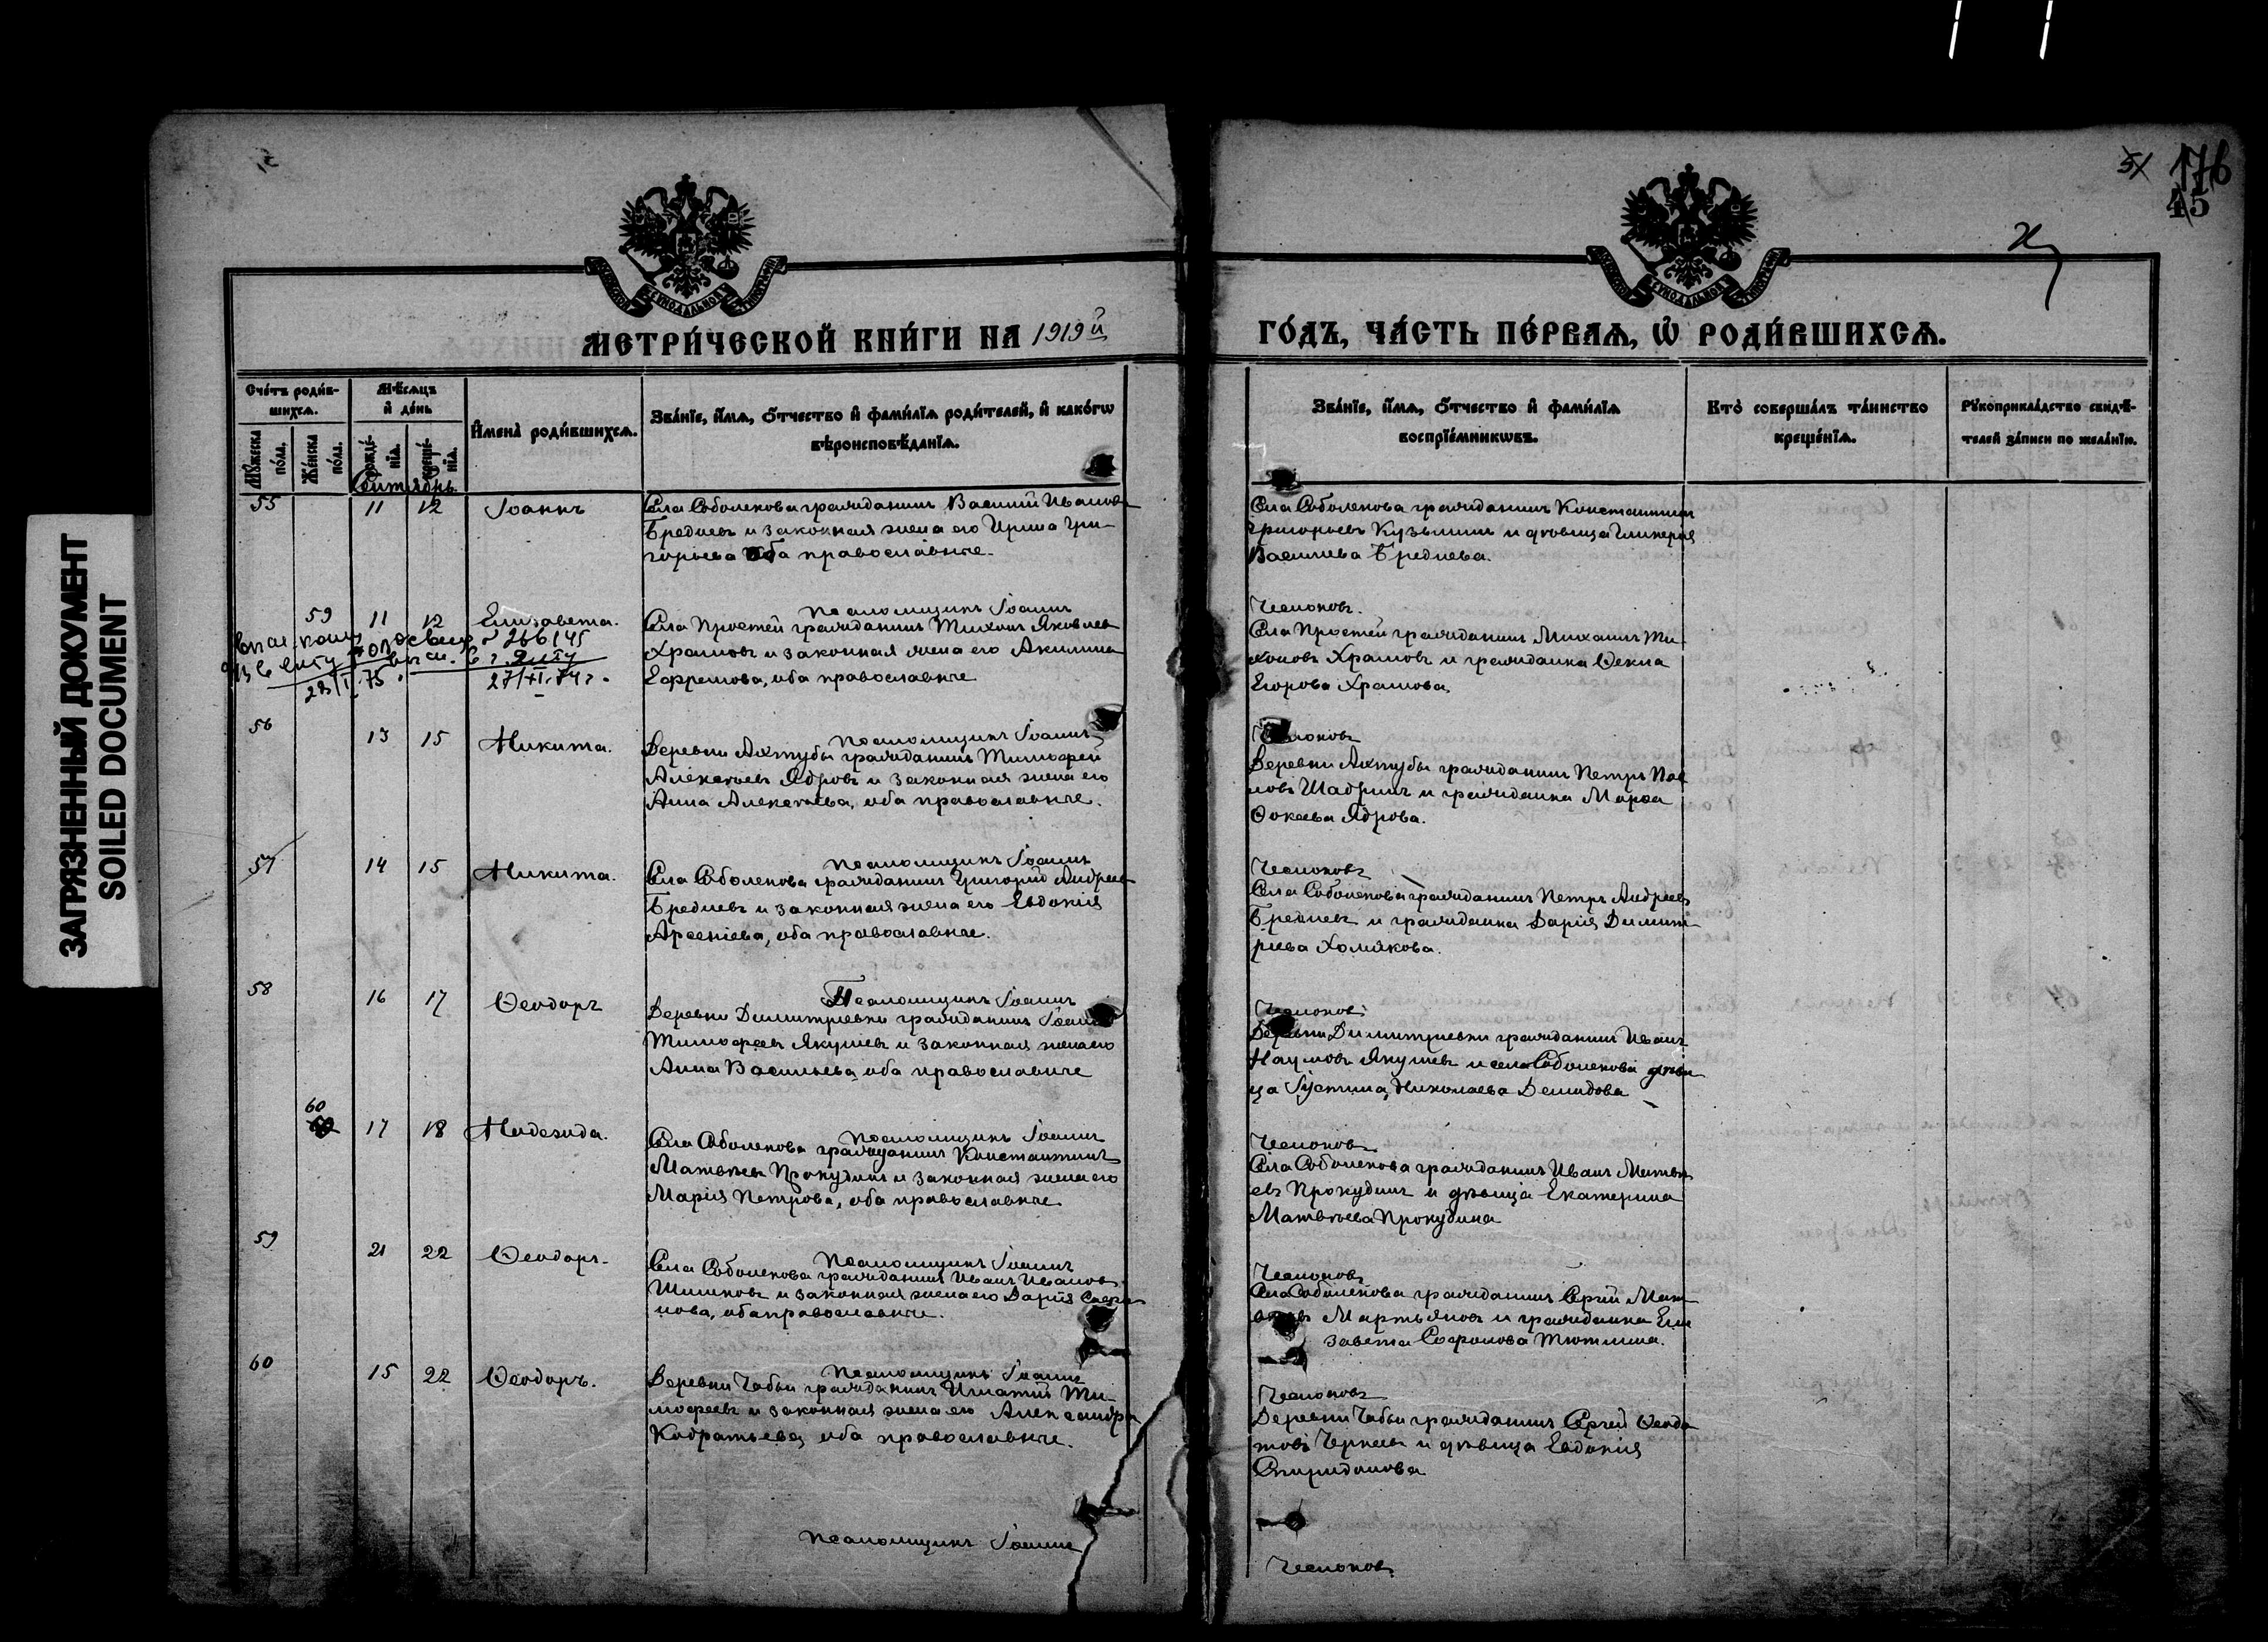 51 176
45
МЕТРИ́ЧЕСКОЙ КНИ́ГИ НА 1919й
ГО́ДЪ, ЧА́СТЬ ПЕ́РВАѦ, Ѡ РОДИ́ВШИХСѦ.
Сче́тъ роди́в-
шихсѧ.
Мꙋ́жеска по́ла.
Же́нска по́ла.
Мѣ́сѧцъ
и҆ де́нь
рожде́-
нїѧ.
креще́-
нїѧ.
И҆мена̀ роди́вшихсѧ.
Зва́нїе, и҆́мѧ, ѻ҆́тчество и҆ фами́лїѧ роди́телей, и҆ како́гѡ
вѣроисповѣ́данїѧ.
Зва́нїе, и҆́мѧ, ѻ҆́тчество и҆ фами́лїѧ
воспрїе́мникѡвъ.
Кто̀ соверша́лъ та́инство
креще́нїѧ.
Рꙋкоприкла́дство свидѣ́-
телей за́писи по жела́нїю.
Сентябрь.
55 11 12 Іоаннъ
Села Соболекова гражданинъ Василій Иванов
Бредневъ и законная жена его Ирина Гри-
горьева оба православные.
Села Соболекова гражданинъ Константинъ
Григорьевъ Кузьминъ и дѣвица Гликерія
Васильева Бреднева.
Псаломщикъ Іоаннъ
Челноковъ.
59 11 12 Елизавета.
266145
23/I.75.
27/XI.74г.
Села Простей гражданинъ Тихонъ Яковлев
Храмовъ и законная жена его Акилина
Ефремова, оба православные
Села Простей гражданинъ Михаилъ Ти-
хоновъ Храмовъ и гражданка Ѳекла
Егорова Храмова
Псаломщикъ Іоаннъ
Челноковъ
56 13 15 Никита.
Деревни Ахтубы гражданинъ Тимофей
Алексѣевъ Ядровъ и законная жена его
Анна Алексѣева, оба православные.
Деревни Ахтубы гражданинъ Петръ Пав
ловъ Шадринъ и гражданка Марѳа
Ѳокеева Ядрова.
Псаломщикъ Іоаннъ
Челноковъ
57 14 15 Никита.
Села Соболекова гражданинъ Григорій Андреев
Бредневъ и законная жена его Евдокія
Арсеніева, оба православные.
Села Соболекова гражданинъ Петръ Андреевъ
Бредневъ и гражданка Дарія Димит-
ріева Хомякова.
Псаломщикъ Іоаннъ
Челноковъ
58 16 17 Ѳеодоръ
Деревни Димитріевки гражданинъ Іоаннъ
Тимофеевъ Якушевъ и законная жена его
Анна Васильева оба православные
Деревни Димитріевки гражданинъ Иванъ
Наумовъ Якушевъ и села Соболекова дѣви
ца Іустина Николаева Демидова
Псаломщикъ Іоаннъ
Челноковъ
60 17 18 Надежда.
Села Соболекова гражданинъ Константинъ
Матвѣевъ Прокудинъ и законная жена его
Марія Петрова, оба православные
Села Соболекова гражданинъ Иванъ Матвѣ
евъ Прокудинъ и дѣвица Екатерина
Матвѣева Прокудина
Псаломщикъ Іоаннъ
Челноковъ
59 21 22 Ѳеодоръ.
Села Соболекова гражданинъ Иванъ Иванов
Шишковъ и законная жена его Дарія Сафро
нова, оба православные.
Села Соболекова гражданинъ Сергій Мат-
вѣевъ Мартьяновъ и гражданка Ели
завета Софронова Тютлина.
Псаломщикъ Іоаннъ
Челноковъ
60 15 22 Ѳеодоръ.
Деревни Чабьи гражданинъ Игнатій Ти-
мофеевъ и законная жена его Александра
Кодратьева, оба православные.
Деревни Чабьи гражданинъ Сергей Ѳеодо
товъ и дѣвица Евдокія
Спиридонова
Псаломщикъ Іоаннъ
Челноковъ
ЗАГРЯЗНЕННЫЙ ДОКУМЕНТ
SOILED DOCUMENT